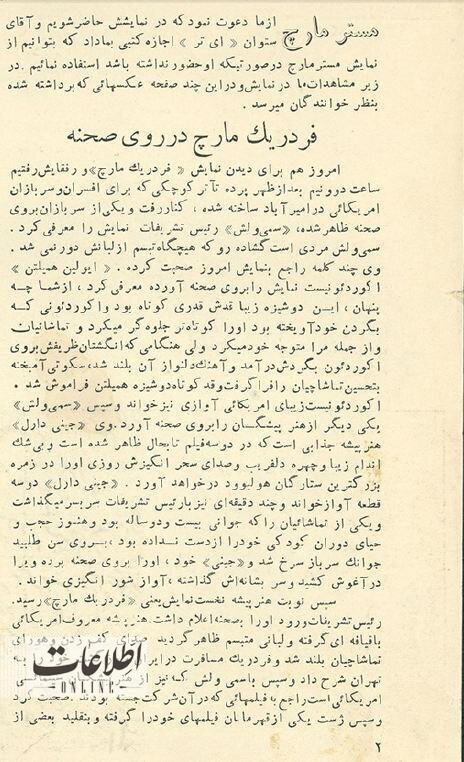 مستر مارچ ازما دعوت نمود که در نمایشش حاضر شویم و آقای
ستوان « ای تر » اجازه کتبی بما داد که بتوانیم از
نمایش مستر مارچ در صورتیکه او حضور نداشته باشد استفاده نمائیم. در
زیر مشاهدات ما در نمایش و در این چند صفحه عکسهائی که برداشته شده
بنظر خوانندگان میرسد .
فردریك مارچ در روی صحنه
امروز هم برای دیدن نمایش « فردریك مارچ» و رفقایش رفتیم
ساعت دو و نیم بعد از ظهر پرده تآتر کوچکی که برای افسران و سربازان
امریکائی در امیر آباد ساخته شده ، کنار رفت و یکی از سربازان بروی
صحنه ظاهر شده، «سمی ولش» رئیس تشریفات نمایش را معرفی کرد .
سمی ولش مردی است گشاده رو که هیچگاه تبسم از لبانش دور نمی شد .
وی چند کلمه راجع بنمایش امروز صحبت کرده . « ایرلین همیلتن »
آکوردئونیست نمایش را بروی صحنه آورده معرفی کرد ، از شما چه
پنهان ، این دوشیزه زیبا قدش قدری کوتاه بود و آکوردئونی که
بگردن خود آویخته بود اورا کوتاه تر جلوه گر میکرد و تماشاچیان
و از جمله مرا متوجه خود میکرد ولی هنگامی که انگشتان ظریفش بروی
آکوردئون بگردش درآمد و آهنك دلنواز آن بلند شد، سکوتی آمیخته
بتحسین تماشاچیان را فرا گرفت و قد کوتاه دوشیزه همیلتن فراموش شد .
آکوردئونیست زیبای امریکائی آوازی نیز خواند و سپس «سمی ولش»
یکی دیگر از هنر پیشگان را بروی صحنه آورد . وی « جینی دارل»
هنر پیشه جذابی است که در دو سه فیلم تابحال ظاهر شده است و بی شك
اندام زیبا و چهره دلفریب و صدای سحر انگیزش روزی اورا در زمره
بزرگترین ستارگان هولیوود در خواهد آورد . «جینی دارل» دو سه
قطعه آواز خواند و چند دقیقه ای نیز با رئیس تشریفات سربسر میگذاشت
و یکی از تماشائیان را که جوانی بیست و دو ساله بود و هنوز حجب و
حیای دوران کودکی خود را از دست نداده بود ، بروی سن طلبید
جوانك سرباز سرخ شد و «جینی» خود ، اورا بروی صحنه برده ویرا
در آغوش کشید و سر بشانه اش گذاشته ، آواز شور انگیزی خواند .
سپس نوبت هنر پیشه نخست نمایش یعنی «فردریك مارچ» رسید.
رئیس تشریفات ورود اورا بصحنه اعلام داشت. هنر پیشه معروف امریکائی
باقیافه ای گرفته و لبانی متبسم ظاهر گردید صدای کف زدن و هورای
تماشاچیان بلند شد و فردریك مسافرت در ایران به
تهران شرح داد و سپس با سمی ولش که نیز از هنر
امریکائی است راجع با فیلمهائی که در آن شرکت جسته بودند صحبت کرد
و سپس ژست یکی از قهرمانان فیلمهای خود را گرفته و بتقلید بعضی از
۲
اطلاعات
ONLINE